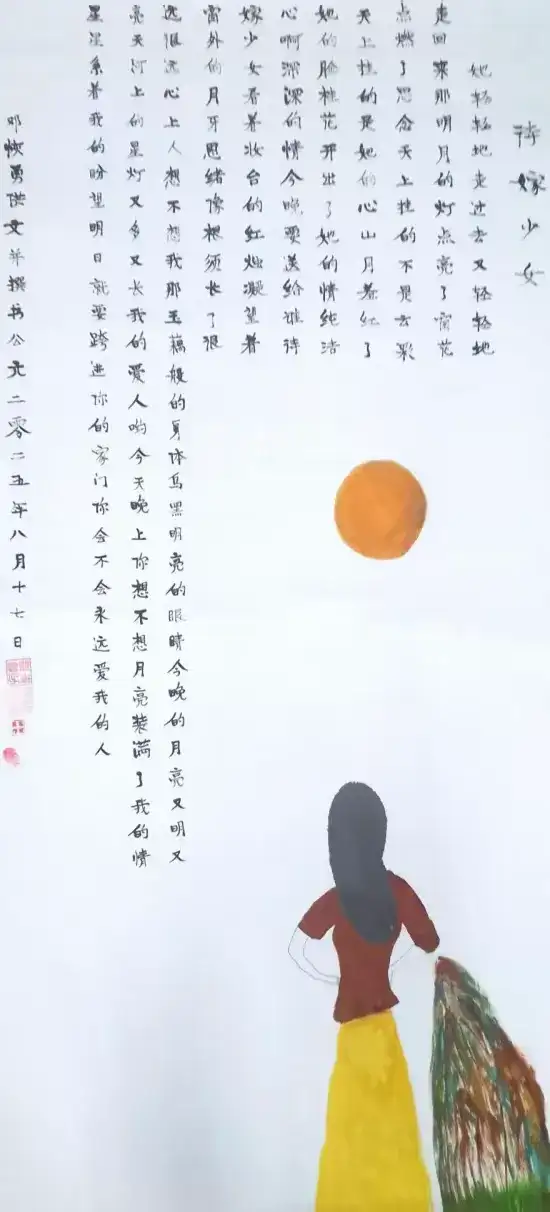 待嫁少女
她轻轻地走过去又轻轻地
走回来那明月的灯点亮了窗花
点燃了思念天上挂的不是云彩
天上挂的是她的心山月羞红了
她的脸桂花开出了她的情纯洁
心啊深深的情今晚要送给谁待
嫁少女看着妆台的红烛凝望着
窗外的月牙思绪像根须长了很
远很远心上人想不想我那玉藕般的身体乌黑明亮的眼睛今晚的月亮又明又
亮天河上的星灯又多又长我的爱人哟今天晚上你想不想月亮装满了我的情
星星系着我的盼望明日就要跨进你的家门你会不会永远爱我的人
邓 勇供文并撰书公元二零二五年八月十七日